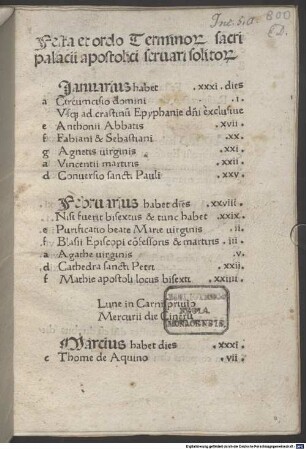 Inc. s.a. 800
Festa et ordo Terminoꝝ sacri
palacii apostolici seruari solitoꝝ
Januarius habet .xxxi. dies
a Circumcisio domini .i.
Vsqȝ ad crastinū Epyphanie dñi exclusiue
e Anthonii Abbatis .xvii.
f Fabiani & Sebastiani .xx.
g Agnetis virginis .xxi.
a Vincentii martiris .xxii.
d Conuersio sancti Pauli .xxv.
Februarius habet dies .xxviii.
Nisi fuerit bisextus & tunc habet .xxix.
e Purificatio beate Marie virginis .ii.
f Blasii Episcopi cōfessoris & martiris .iii.
a Agathe virginis .v.
d Cathedra sancti Petri .xxii.
f Mathie apostoli locus bisexti .xxiiii.
Lune in Carnispriuio
Mercurii die Cinerū
Marcius habet dies .xxxi.
c Thome de Aquino .vii.
MONACENSIS.